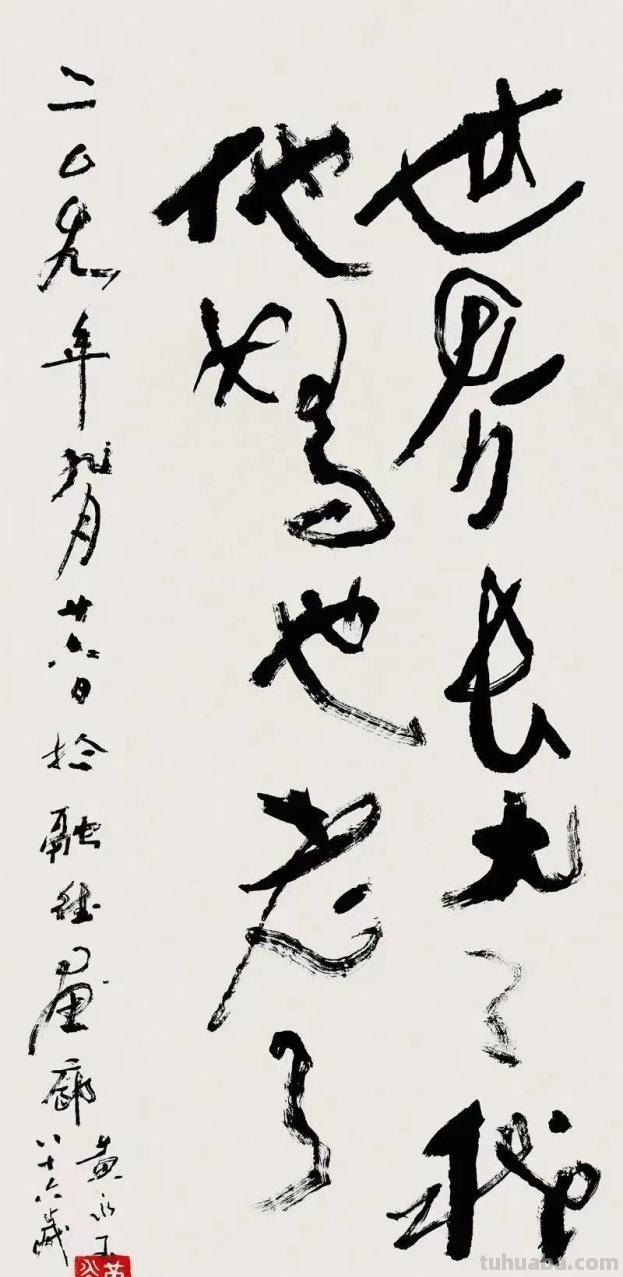 世界长大了我
他媽也老了
二〇〇九年九月廿六日於融德畫廊
黄永玉
八十六歲
tuhuaba.com